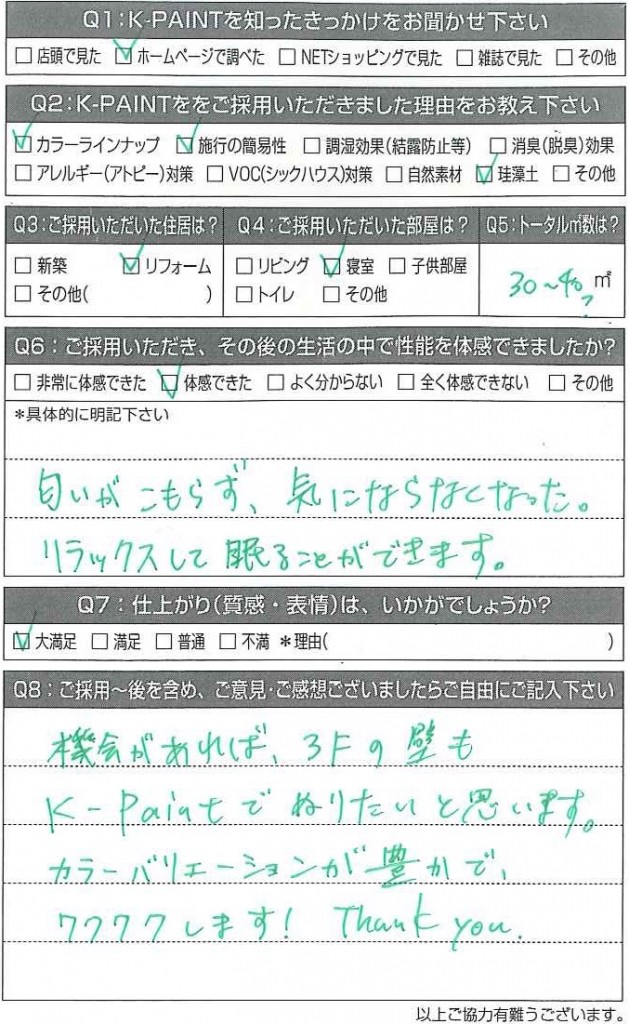 Q1:K-PAINTを知ったきっかけをお聞かせ下さい
□店頭で見た ☑ホームページで調べた □NETショッピングで見た □雑誌で見た □その他
Q2:K-PAINTををご採用いただきました理由をお教え下さい
☑カラーラインナップ ☑施行の簡易性 □調湿効果(結露防止等) □消臭(脱臭)効果
□アレルギー(アトピー)対策 □VOC(シックハウス)対策 □自然素材 ☑珪藻土 □その他
Q3:ご採用いただいた住居は? Q4:ご採用いただいた部屋は? Q5:トータル㎡数は?
□新築 ☑リフォーム □リビング ☑寝室 □子供部屋 30〜40? ㎡
□その他( ) □トイレ □その他
Q6:ご採用いただき、その後の生活の中で性能を体感できましたか?
□非常に体感できた ☑体感できた □よく分からない □全く体感できない □その他
*具体的に明記下さい
匂いがこもらず、気にならなくなった。
リラックスして眠ることができます。
Q7:仕上がり(質感・表情)は、いかがでしょうか?
☑大満足 □満足 □普通 □不満 *理由( )
Q8:ご採用〜後を含め、ご意見・ご感想ございましたらご自由にご記入下さい
機会があれば、3Fの壁も
K-Paintでぬりたいと思います。
カラーバリエーションが豊かで、
ワクワクします! Thank you.
以上ご協力有難うございます。